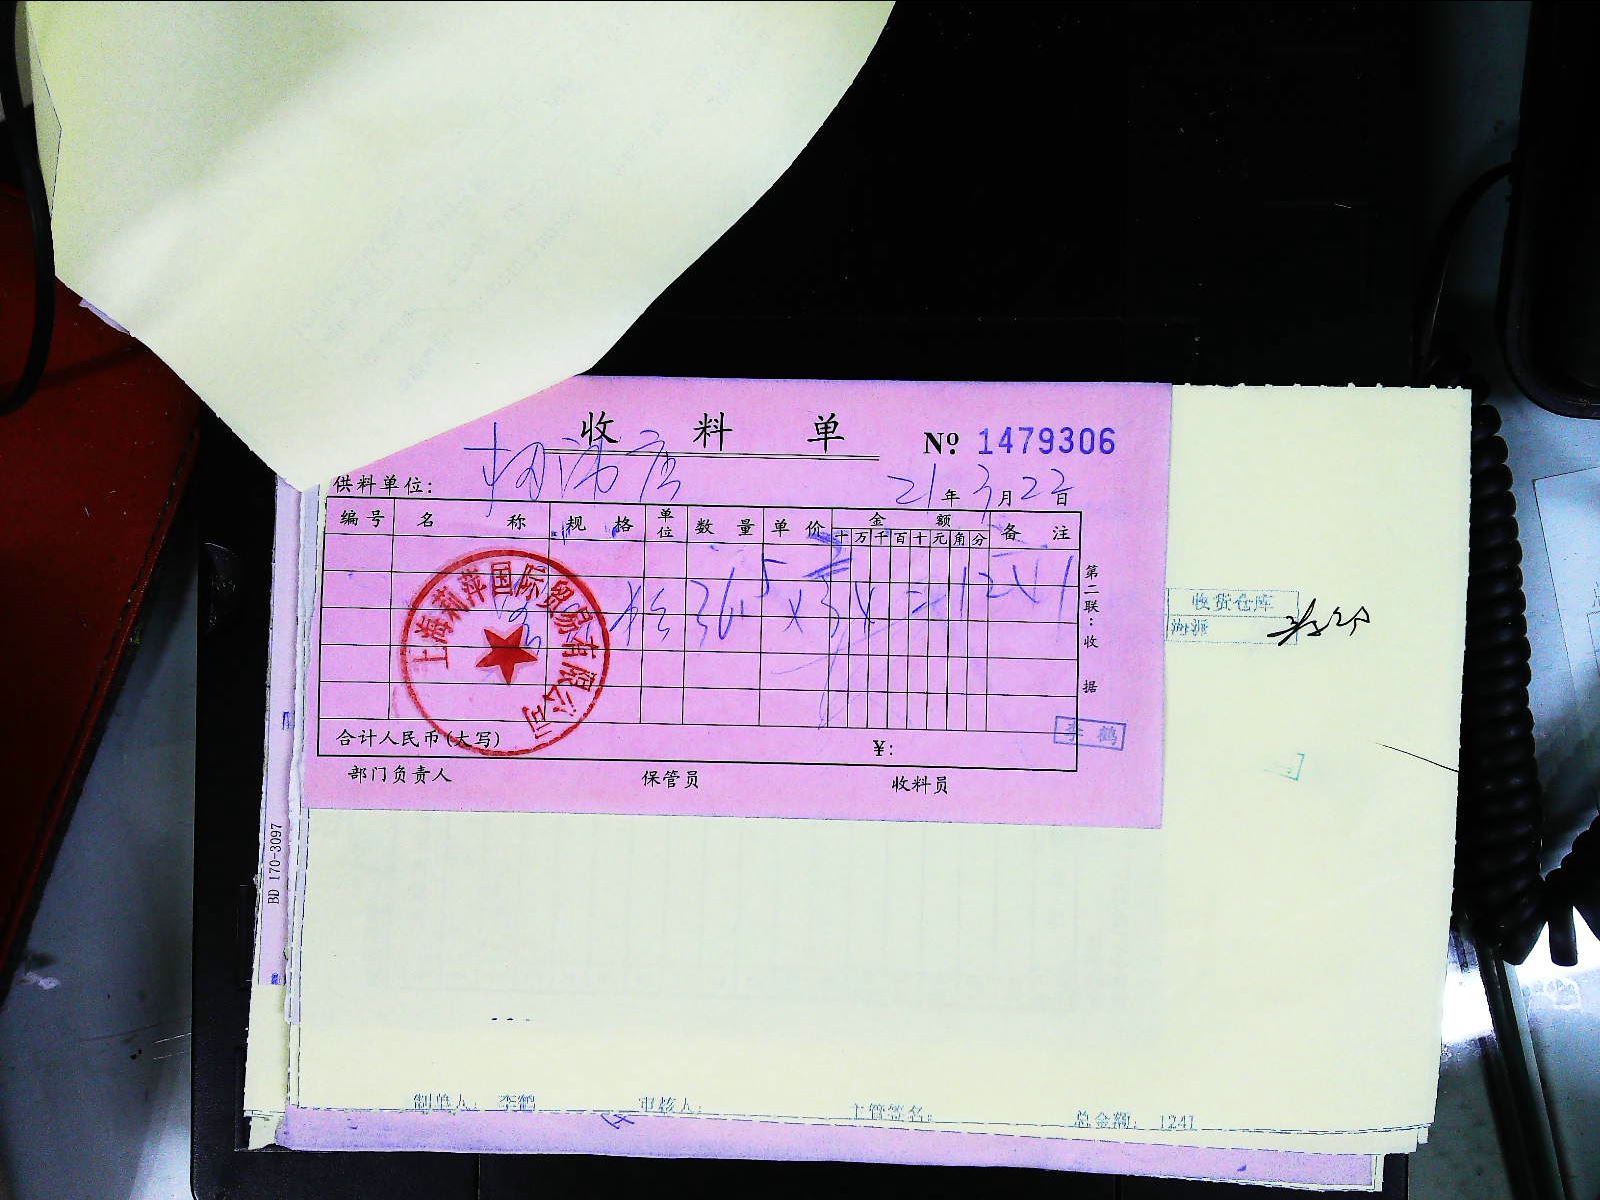 收料单
№ 1479306
供料单位:
21年3月22日
编号 名称 规格 单位 数量 单价 金额 备注
十万千百十元角分
36.5 x 34 = 1241
上海莉萍国际贸易有限公司
第二联:收据
收货仓库
合计人民币(大写) ¥:
李鹤
部门负责人 保管员 收料员
BD 170-3097
制单人: 李鹤 审核人: 主管签名: 总金额: 1241